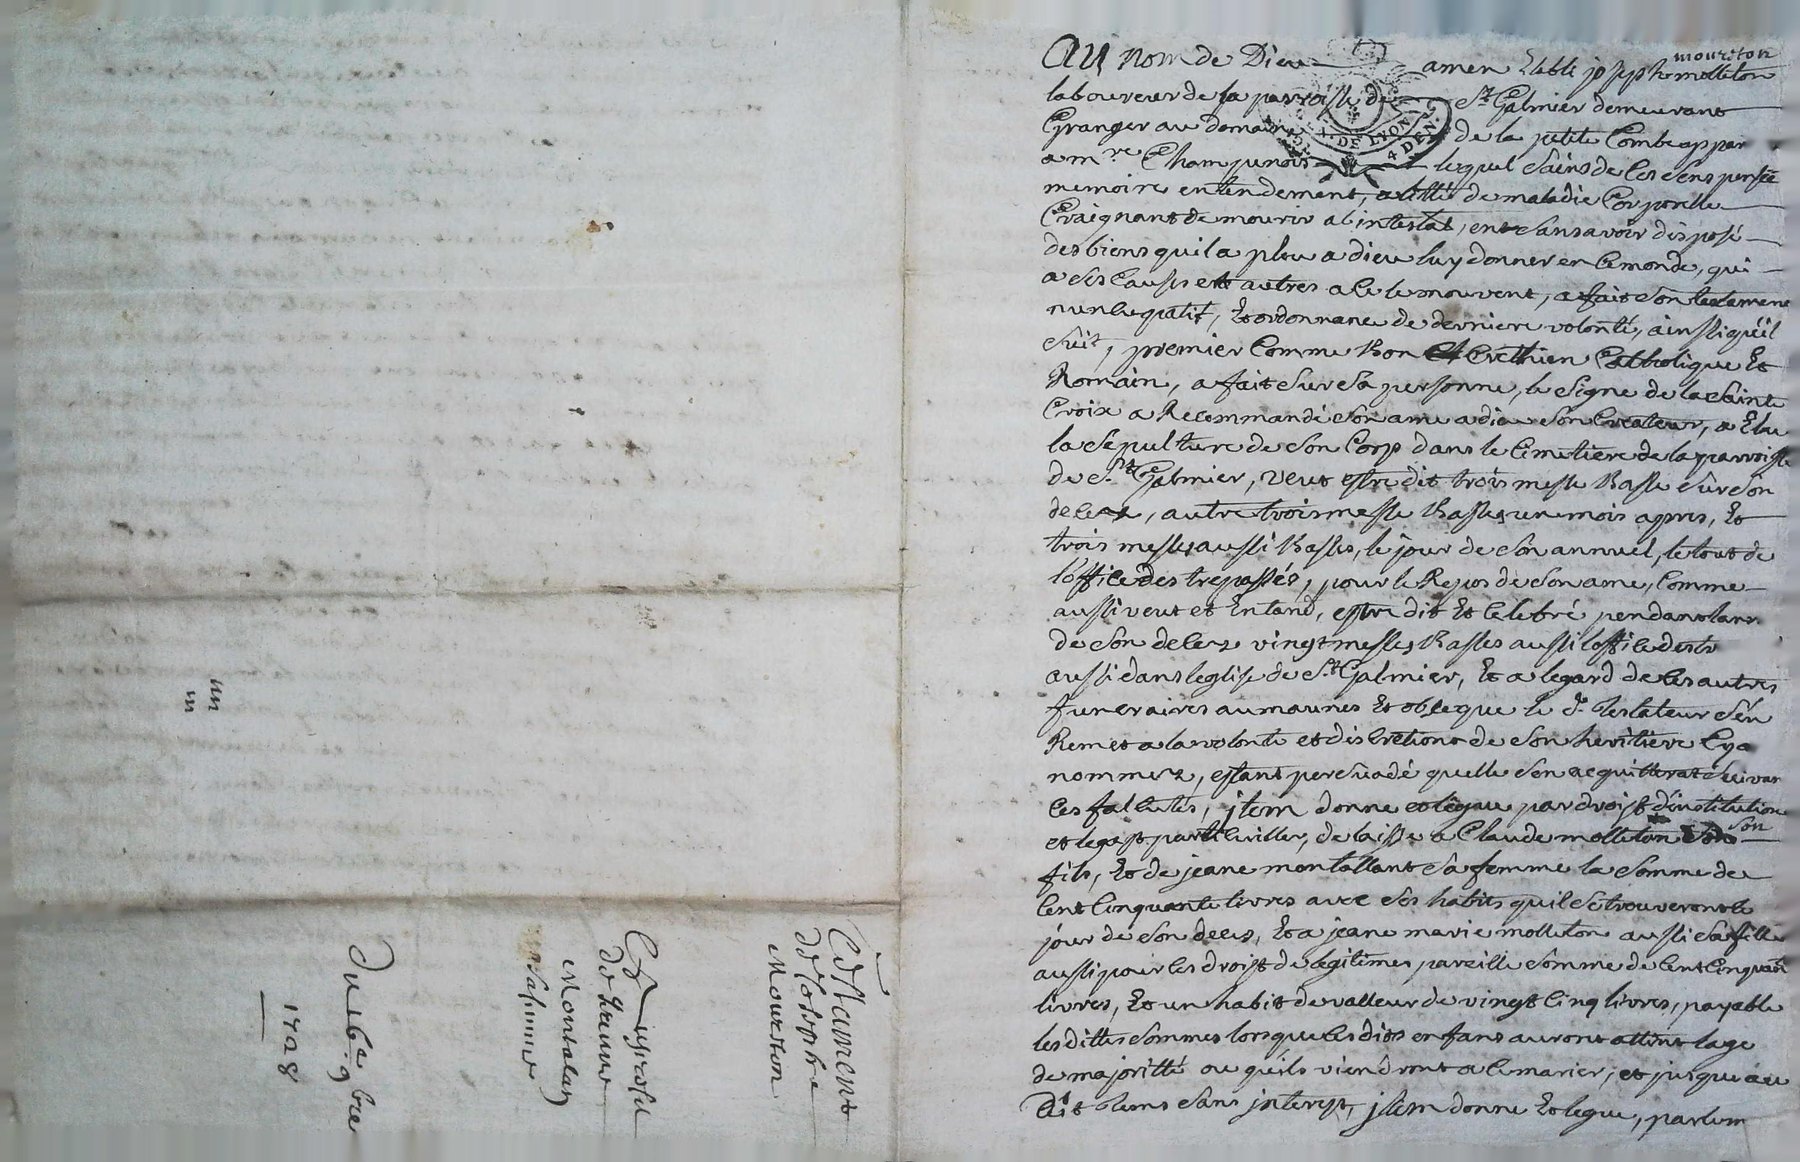 Au Nom de Dieu amen Etabli joseph mollston
mourston
laboureur de la parroisse de St Galmier demeurant
Granger au domaine de la petite Combe appar
a mre Champunois lequel sains de ces sens pensée
memoire entendement, de maladie Corporelle
Craignant de mourir abintestat, ent sans avoir disposé
des biens quil a pleu a dieu luy donner en ce monde, qui
a ses causes ett autres a ce le mouvent, a fait son testament
nuncupatif, Et ordonnance de derniere volonté, ainsi quil
suit, premier Comme bon Crethien Catholique Et
Romain, a fait sur sa personne, le signe de la sainte
Croix a Recommandé son ame a dieu son Createur, a Elu
la sepulture de son Corp dans le Cimetiere de la parroisse
de St Galmier, veut estre dit trois messe basse sur son
deces, autre trois messe basses un mois apres, Et
trois messes aussi basses, le jour de son annuel, le tout de
l'office des trepassés, pour le Repos de son ame, Comme
aussi veut et Entand, estre dit Et Celebré pendant lan
de son deces vingt messes basses aussi loffice dests
aussi dans leglise de St Galmier, Et a legard de ces autres
funeraires aumaunes Et obseque le dt testateur sen
Remet a la volonté et discretions de son heritiere Cya
nommez, estant persuadé quelle sen acquitterat suivan
ces facultés, jtem donne et legue par droist dinstitution
et legast particuillier, delaisse a Claude mollston son
son
fils, Et de jeane montallant sa femme la somme de
Cent Cinquante livres avec ses habits quil se trouveront le
jour de son deces, Et a jeane marie mollston aussi sa fille
aussi pour ces droist de legitimes pareille somme de Cent Cinquante
livres, Et un habit de valleur de vingt Cinq livres, payable
lesdittes sommes lorsque cesdits enfans auront attint lage
de majoritté ou quils viendront a ce marier, et jusque au
dit tems sans jnterest, jtem donne Et legue, par lem
un
un
Testament
de Joseph
Mourston
de
Montalan
sa femme
du 16e 9bre
1728